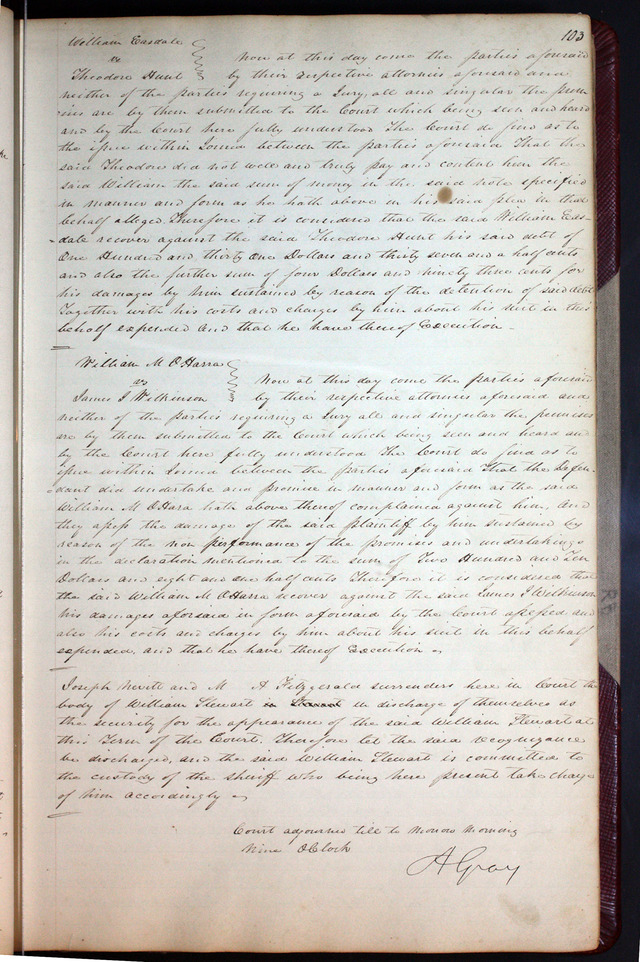 103
William Easdale
vs
Now at this day come the parties aforesaid
Theodore Hunt
by their respective attornies aforesaid and
neither of the parties requiring a Jury all and singular the prem
ises are by them submitted to the Court which being seen and heard
and by the Court here fully understood The Court do find as to
the issue within Joined between the parties aforesaid That the
said Theodore did not well and truly pay and content him the
said William the said sum of money in the said note specified
in manner and form as he hath above in his said plea in that
behalf alleged. Therefore it is considered that the said William Eas-
dale recover against the said Theodore Hunt his said debt of
One Hundred and thirty One Dollars and thirty seven and a half cents
and also the further sum of four Dollars and ninety three cents for
his damages by him sustained by reason of the detention of said debt
Together with his costs and charges by him about his suit in this
behalf expended And that he have thereof Execution -
William M O Harra
vs
Now at this day come the parties aforesaid
James J Wilkinson
by their respective attornies aforesaid and
neither of the parties requiring a Jury all and singular the premises
are by them submitted to the Court which being seen and heard and
by the Court here fully understood The Court do find as to
issue within Joined between the parties aforesaid that the Defen
dant did undertake and promise in manner and form as the said
William M O Hara hath above thereof complained against him, and
they assess the damage of the said plaintiff by him sustained by
reason of the non performance of the promises and undertakings
in the declaration mentioned to the sum of Two Hundred and Ten
Dollars and eight and one half cents Therefore it is considered that
the said William M O Harra recover against the said James J Wilkinson
his damages aforsaid in form aforesaid by the Court assessed and
also his costs and charges by him about his suit in this behalf
expended, and that he have thereof Execution -
Joseph Nevitt and M A Fitzgerald surrenders here in Court the
body of William Stewart in in discharge of themselves as
the security for the appearance of the said William Stewart at
this Term of the Court. Therefore let the said recognizance
be discharged, and the said William Stewart is committed to
the custody of the sheriff who being here present take charge
of him accordingly -
Court adjourned till to Morrow Morning
Nine OClock
A Gray